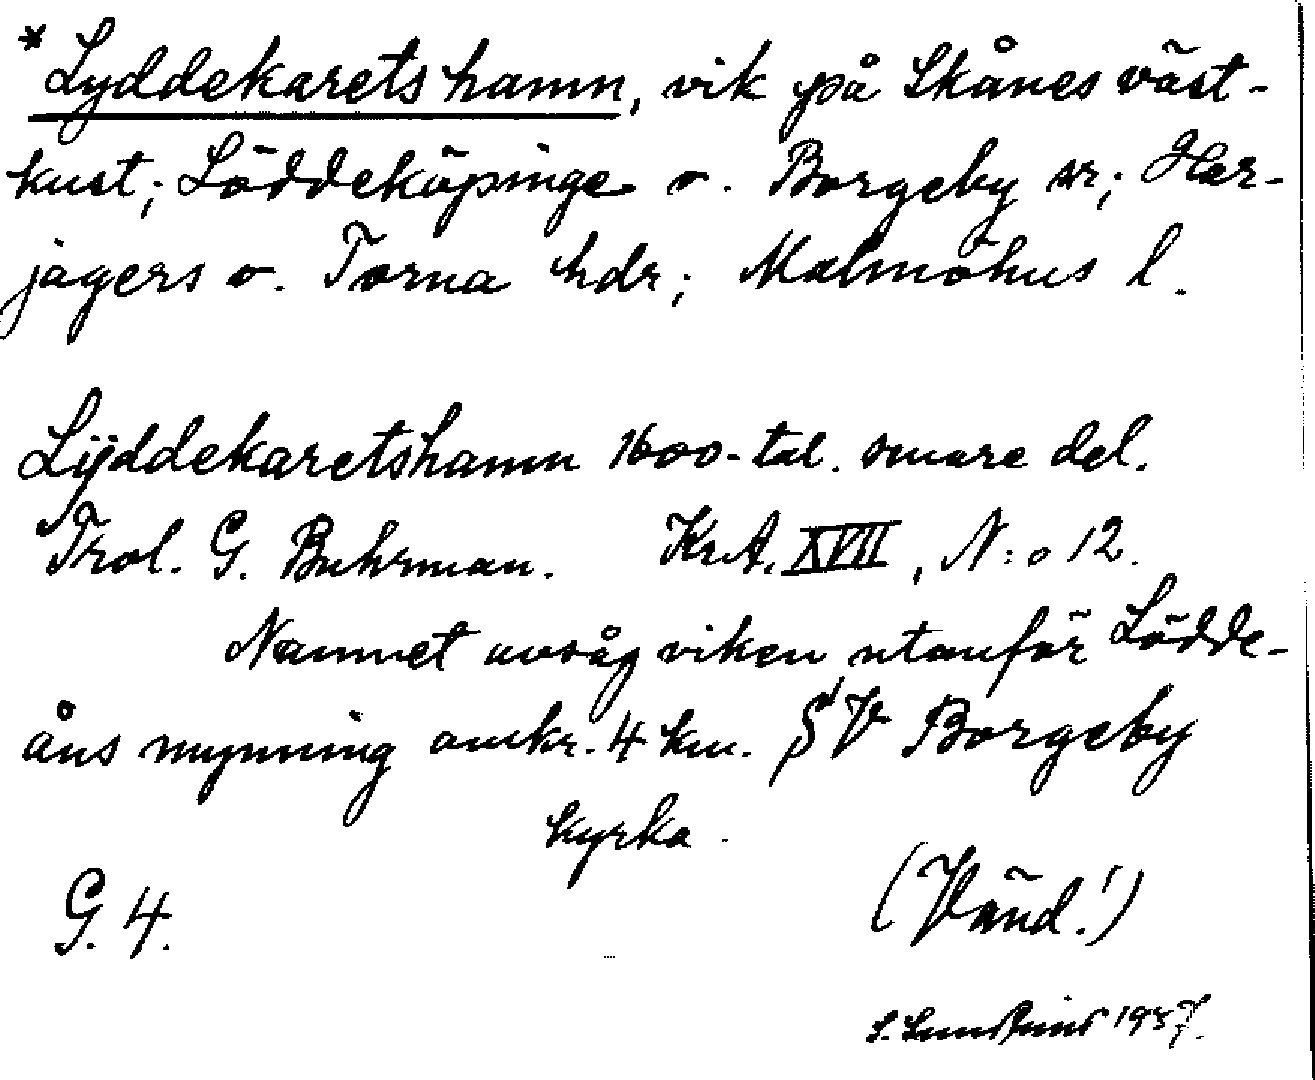 * Lyddekaretshamn, vik på Skånes väst-
kust; Löddeköpinge o. Borgeby sr; Har-
jagers o. Torna hdr; Malmöhus l.
Lÿddekaretshamn 1600-tal. senare del.
Trol. G. Buhrman. KrA. XVII, N:o 12.
Namnet avsåg viken utanför Lödde-
åns mynning omkr. 4 km. SV Borgeby
kyrka.
G. 4.
(Vänd!)
1957.